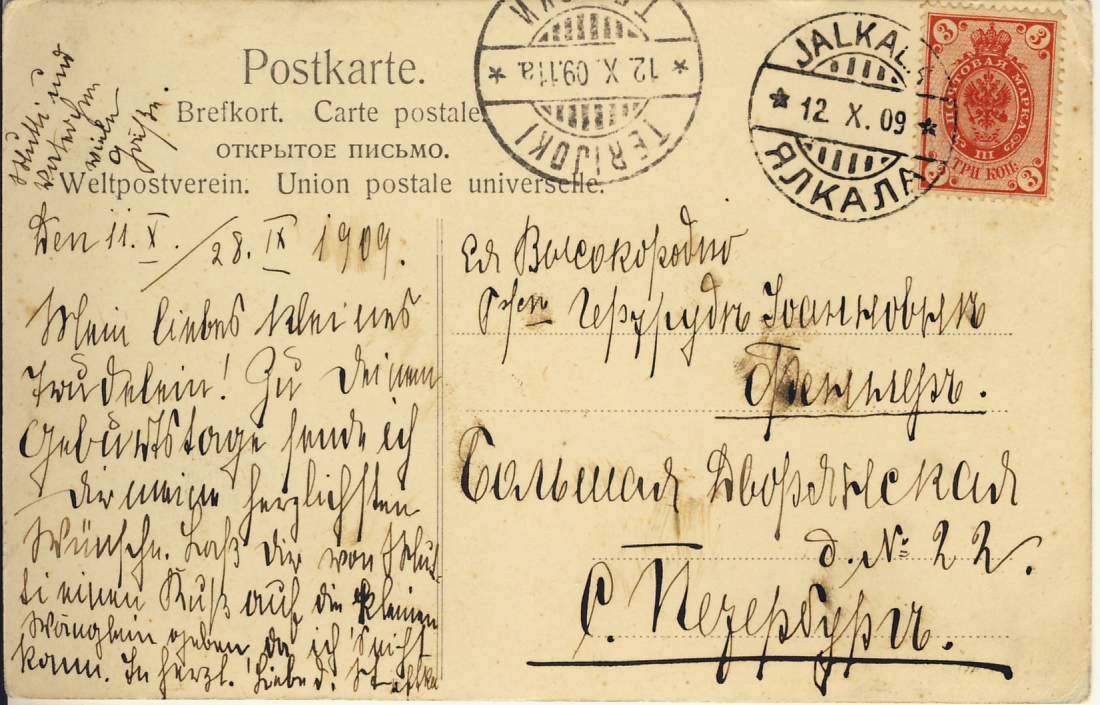 Postkarte.
Brefkort. Carte postale.
ОТКРЫТОЕ ПИСЬМО.
Weltpostverein. Union postale universelle.
12. X. 09.11a.
TERIJOKI
JALKALA
12 X. 09
ЯЛКАЛА
3 3
ПОЧТОВАЯ МАРКА
III
ТРИ КОП.
3 3
Mutti und
vielen
Grüße.
Den 11. X. / 28. IX 1909.
Mein liebes kleines
Trudelein! Zu Deinem
Geburtstage sende ich
Dir meine herzlichsten
Wünsche. Laß Dir von Mut-
ti einen Kuß auf die kleinen
Wänglein geben, da ich's nicht
kann. In herzl. Liebe d.
Ея Высокородію
Гертрудѣ Іоанновнѣ
Большая Дворянская
д. № 22.
С. Петербургъ.